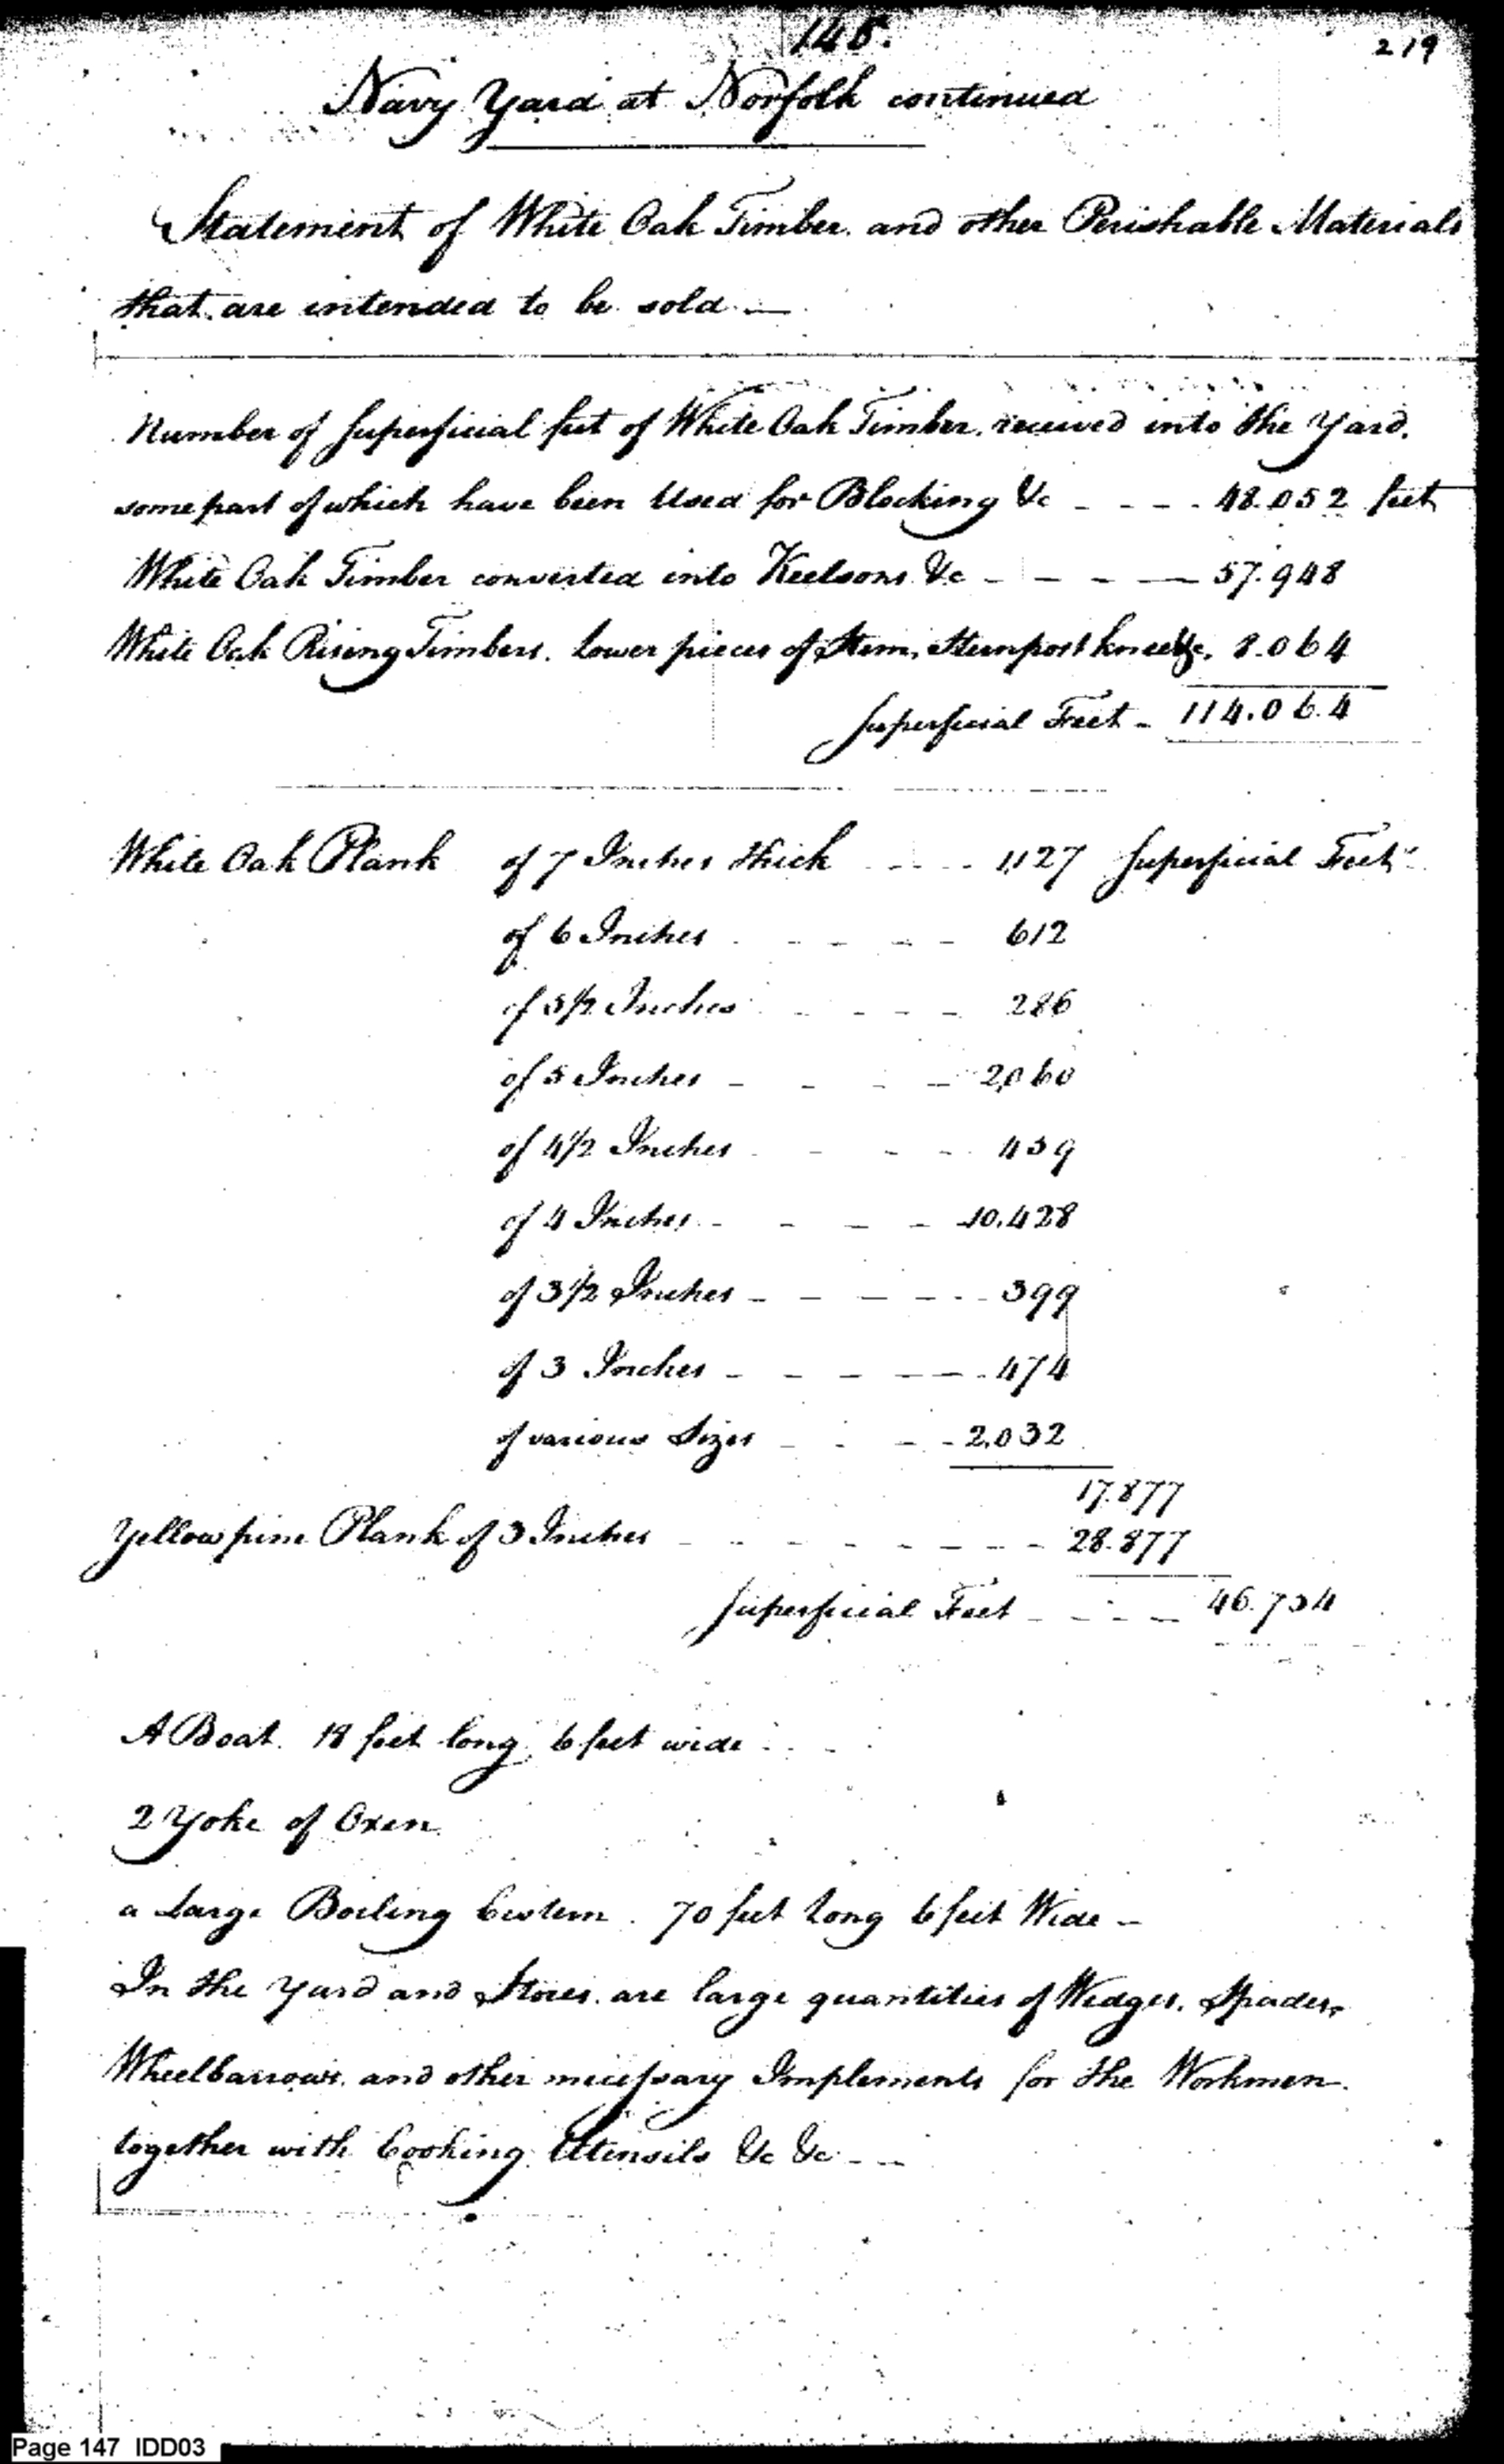 145.
219
Navy Yard at Norfolk continued
Statement of White Oak Timber and other Perishable Materials
that are intended to be sold —
Number of superficial feet of White Oak Timber received into the Yard.
some part of which have been Used for Blocking &c - - - - 48.052 feet
White Oak Timber converted into Keelsons &c - - - — 57.948
White Oak Rising Timbers. Lower pieces of Stem, Sternpost knee &c. 8.064
Superficial Feet - 114.064
White Oak Plank of 7 Inches thick - - - - 1,127 Superficial Feet
of 6 Inches - - - - - 612
of 5½ Inches - - - - - 286
of 5 Inches - - - - 2,060
of 4½ Inches - - - - 459
of 4 Inches - - - - 10.428
of 3½ Inches - - - - - - 399
of 3 Inches - - - - - - 474
of various Sizes - - - - 2,032
17.877
Yellow pine Plank of 3 Inches - - - - - - - - - 28.877
Superficial Feet - - - - 46.754
A Boat. 18 feet long, 6 feet wide - - -
2 Yoke of Oxen
a Large Boiling Cistern. 70 feet Long 6 feet Wide -
In the Yard and Stores are large quantities of Wedges, Spades,
Wheelbarrows and other necessary Implements for the Workmen.
together with Cooking Utensils &c &c - -
Page 147 IDD03